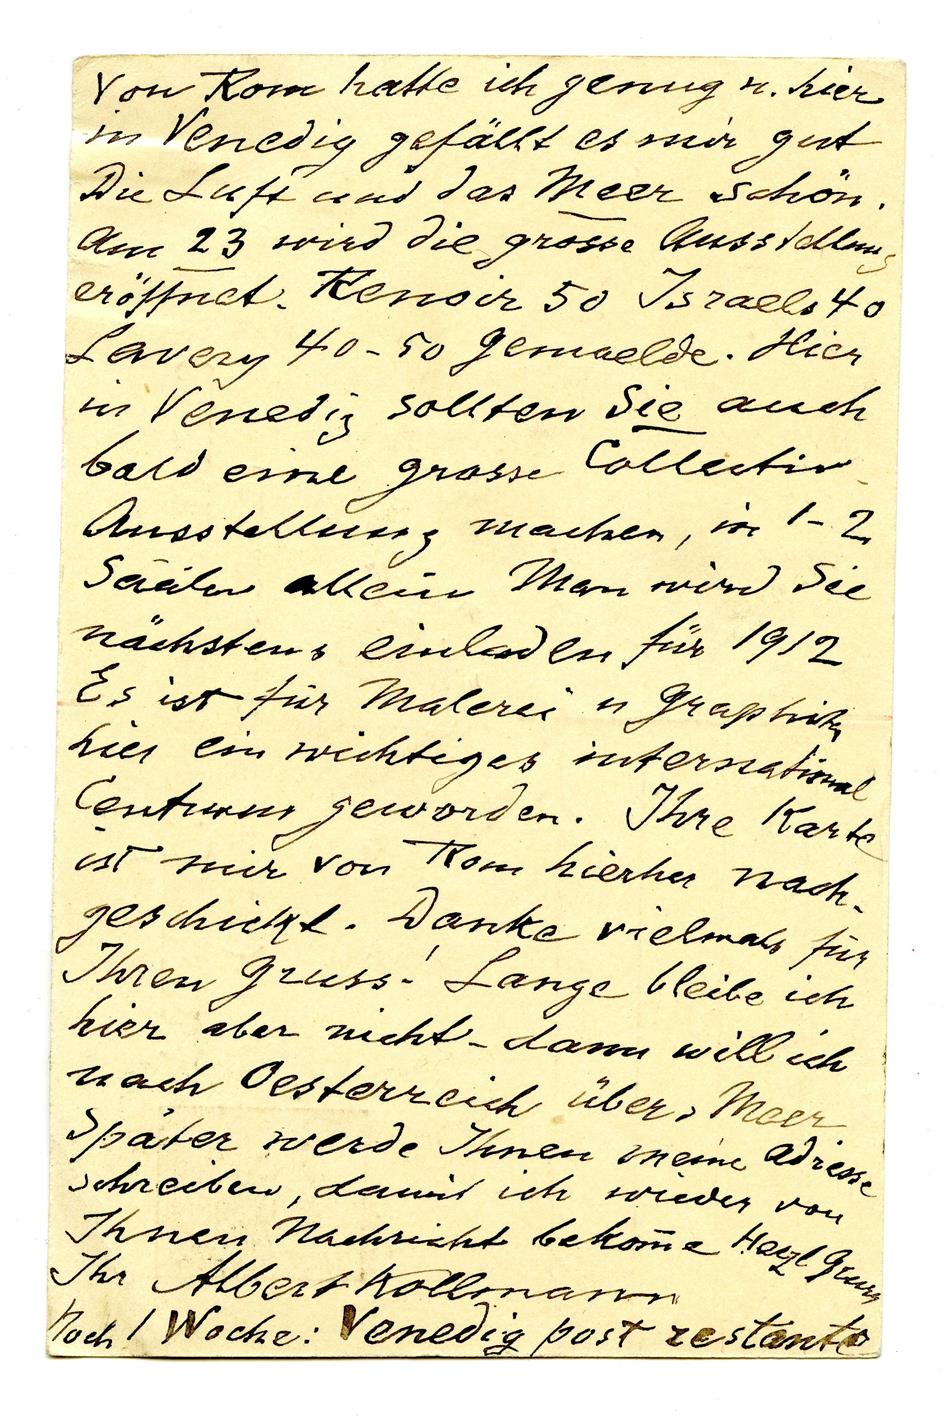 Von Rom hatte ich genug u. hier
in Venedig gefällt es mir gut
Die Luft und das Meer schön.
Am 23 wird die grosse Ausstellung
eröffnet. Renoir 50 Israels 40
Lavery 40-50 Gemaelde. Hier
in Venedig sollten Sie auch
bald eine grosse Collectiv
Ausstellung machen, in 1-2
Säälen allein Man wird Sie
nächstens einladen für 1912
Es ist für Malerei u Graphik
hier ein wichtiges international
Centrum geworden. Ihre Karte
ist mir von Rom hierher nach-
geschickt. Danke vielmals für
Ihren Gruss! Lange bleibe ich
hier aber nicht - dann will ich
nach Oesterreich über's Meer
Später werde Ihnen meine Adresse
schreiben, damit ich wieder von
Ihnen Nachricht bekom̅e Herzl Gruss
Ihr Albert Kollmann
Noch 1 Woche: Venedig post restante